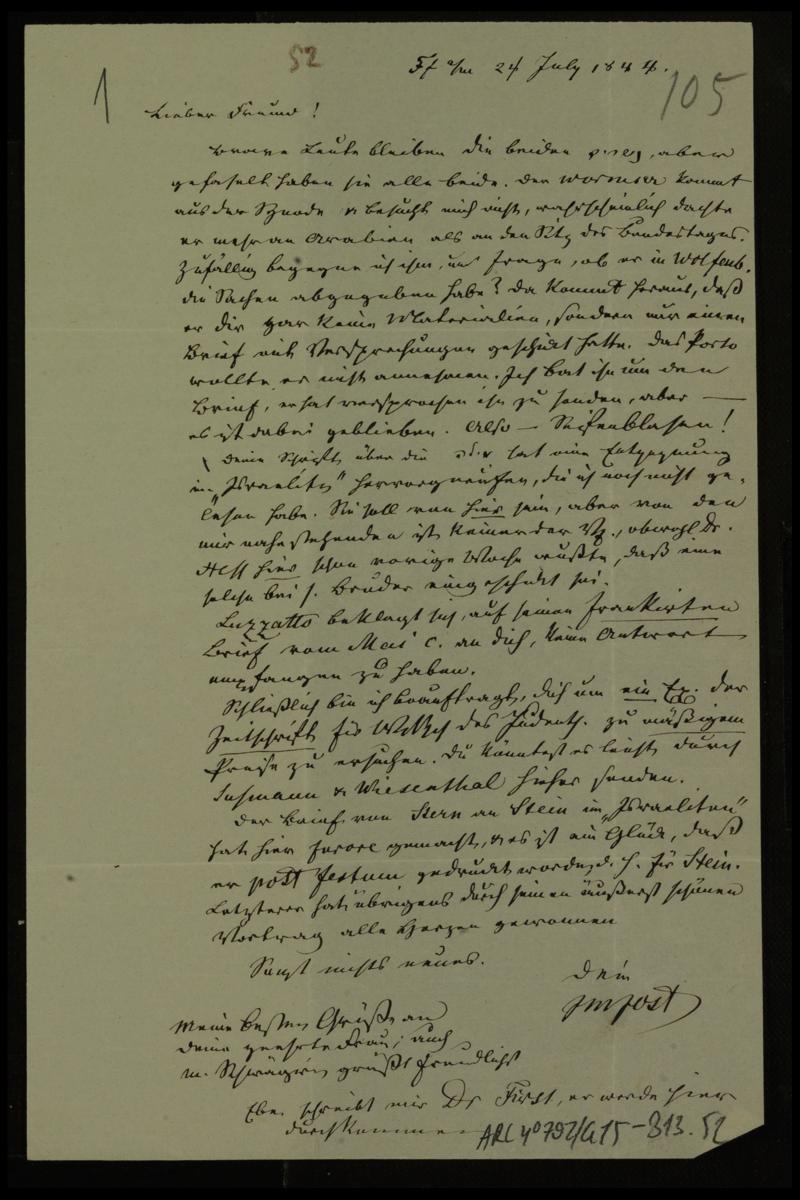 52
1
105
Ff a/m 24 July 1844.
Lieber Freund!
Brave Leute bleiben die beiden, aber
gefaselt haben sie alle beide. Der Wormser kommt
aus der Synode & besucht mich nicht, wahrscheinlich dachte
er mehr an Arabien als an den Sitz des Bundestages.
Zufällig begegne ich ihm, und frage, ob er in Wolfenb.
die Sachen abgegeben habe? Da kommt heraus, daß
er dir gar keine Materialien, sondern nur einen
Brief mit Versprechungen geschickt hatte. Das Porto
wollte er nicht annehmen. Ich bat ihn um den
Brief, er hat versprochen ihn zu senden, aber —
es ist dabei geblieben. Also — Seifenblasen!
Deine Schrift über die hat eine Entgegnung
im „Israelite" hervorgerufen, die ich noch nicht ge-
lesen habe. Sie soll von hier sein, aber von den
mir nahe stehenden ist keiner der Vf., obwohl Dr.
Heß hier schon vorige Woche wußte, daß eine
solche bei s. Bruder eingeschickt sei.
Luzzatto beklagt sich, auf seinen frankirten
Brief vom Mai c. an dich, keine Antwort
empfangen zu haben.
Schließlich bin ich beauftragt, dich um ein Ex. der
Zeitschrift für Wissch des Judenth. zu mäßigem
Preise zu ersuchen. Du könntest es leicht durch
Sußmann & Wiesenthal hieher senden.
Der Brief von Stern an Stein im „Israeliten"
hat hier furore gemacht, & es ist ein Glück, daß
er post festum gedruckt worden, d. h. für Stein.
Letzterer hat übrigens durch seinen äußerst schönen
Vortrag alle Herzen gewonnen
Sonst nichts neues.
Dein
jmjost
Meine besten Grüße an
deine geehrte Frau; auch
m. Schwägerin grüßt freundlichst
Eben schreibt mir Dr Fürst, er werde hier
durchkommen
ARC 4° 792/G15-813.52